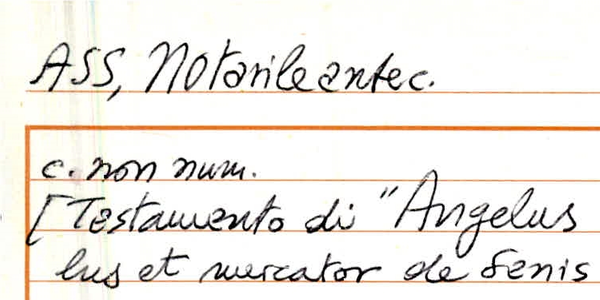 ASS, Notarile antec.
c. non num.
[Testamento di "Angelus
lus et mercator de Senis